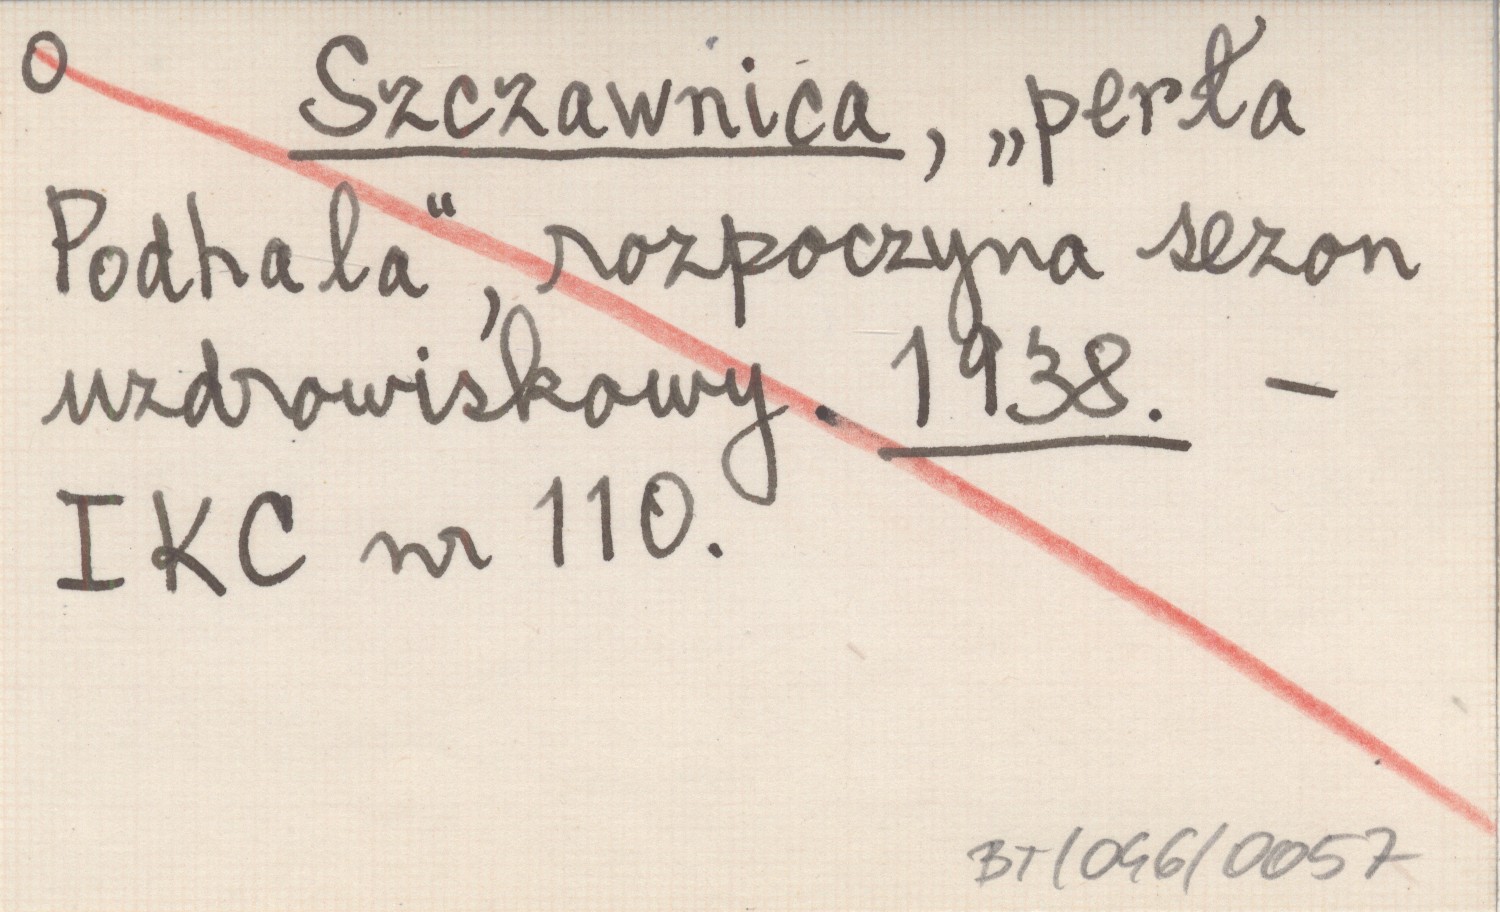 O Szczawnica, „perła
Podhala“, rozpoczyna sezon
uzdrowiskowy. 1938. –
IKC nr 110.
BT/096/0057